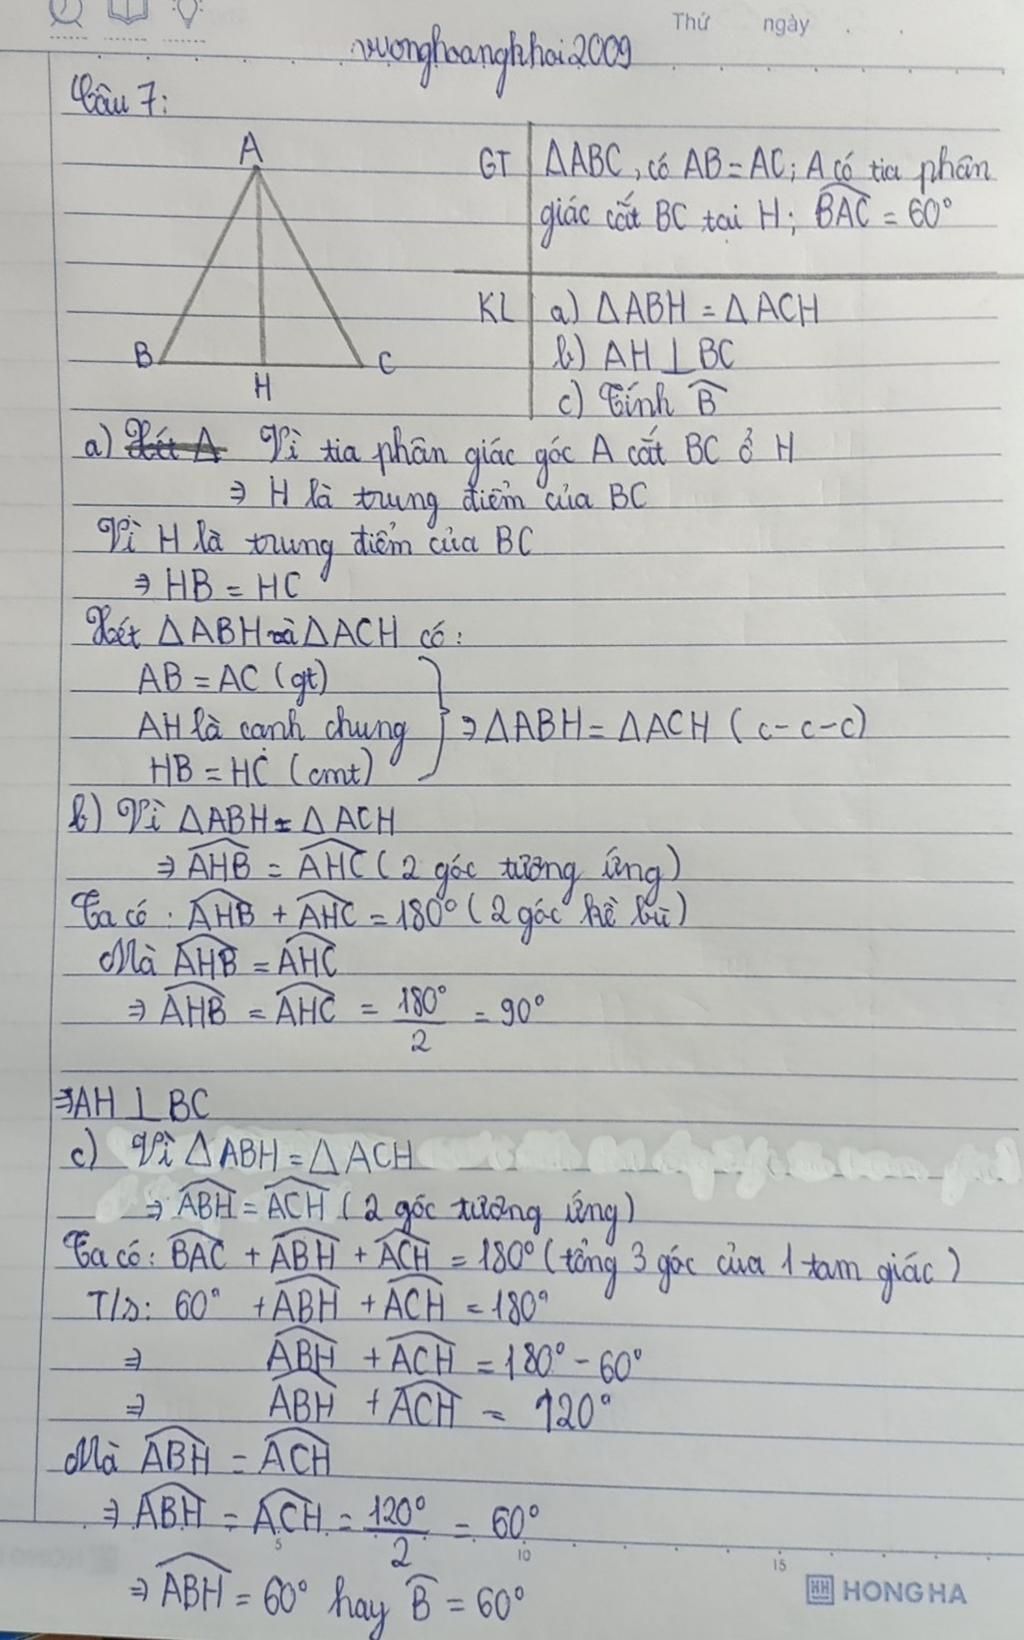 Thứ ngày
vuonghoangkhai2009
Câu 7:
A
B
H
C
GT ΔABC, có AB = AC; A có tia phân
giác cắt BC tại H; $\widehat{BAC}$ = 60°
KL a) ΔABH = ΔACH
b) AH ⊥ BC
c) Tính $\widehat{B}$
a) Xét Δ Vì tia phân giác góc A cắt BC ở H
⇒ H là trung điểm của BC
Vì H là trung điểm của BC
⇒ HB = HC
Xét ΔABH và ΔACH có:
AB = AC (gt)
AH là cạnh chung } ⇒ ΔABH = ΔACH (c-c-c)
HB = HC (cmt)
b) Vì ΔABH = ΔACH
⇒ $\widehat{AHB}$ = $\widehat{AHC}$ (2 góc tương ứng)
Ta có: $\widehat{AHB}$ + $\widehat{AHC}$ = 180° (2 góc kề bù)
Mà $\widehat{AHB}$ = $\widehat{AHC}$
⇒ $\widehat{AHB}$ = $\widehat{AHC}$ = $\frac{180°}{2}$ = 90°
⇒ AH ⊥ BC
c) Vì ΔABH = ΔACH
⇒ $\widehat{ABH}$ = $\widehat{ACH}$ (2 góc tương ứng)
Ta có: $\widehat{BAC}$ + $\widehat{ABH}$ + $\widehat{ACH}$ = 180° (tổng 3 góc của 1 tam giác)
T/s: 60° + $\widehat{ABH}$ + $\widehat{ACH}$ = 180°
⇒ $\widehat{ABH}$ + $\widehat{ACH}$ = 180° - 60°
⇒ $\widehat{ABH}$ + $\widehat{ACH}$ = 120°
Mà $\widehat{ABH}$ = $\widehat{ACH}$
⇒ $\widehat{ABH}$ = $\widehat{ACH}$ = $\frac{120°}{2}$ = 60°
5 10 15
⇒ $\widehat{ABH}$ = 60° hay $\widehat{B}$ = 60°
HH HONG HA